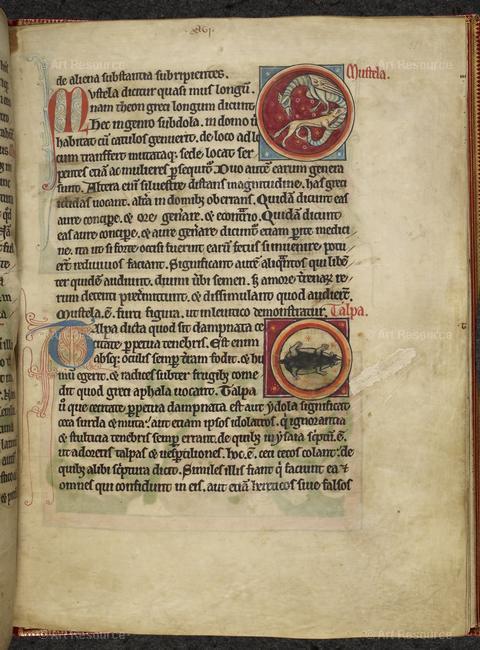 xlvi.
de aliena substantia subripientes.
Mustela.
Mustela dicitur quasi mus longu.
nam theon greci longum dicunt.
Hec ingenio subdola. in domo ubi
habitat cu catulos genuerit. de loco ad lo
cum transfert mutataq; sede locat. ser
pentes etia ac mulieres psequit. Duo aute earum genera
sunt. Altera eni silvestre distans magnitudine. has greci
ictidas vocant. altera in domibus oberrans. Quida dicunt eas
aure concipe. et ore generare. et econtrario. Quidam dicunt
eas aure concipe. et aure generare dicuntur etiam perite medici
ne. ita ut si forte occisi fuerint earum fetus si invenire potu
erit redivivos faciant. Significant aute aliquantos qui libe
ter quide audiunt. divini verbi semen. sed amore terrenarum re
rum detenti pretermittunt. et dissimulant quod audierint.
Mustela. e. furti figura. ut in levitico demonstratur.
Talpa.
Talpa dicta quod sit dampnata ce
citate perpetua tenebris. Est enim
absq; oculis semper terram fodit. et hu
mu egerit. et radices subter frugibus come
dit quod greci aphala vocant. Talpa
que cecitate perpetua dampnata est aut ydola significat
ceca surda et muta. aut etiam ipsos idolatros. q ignorantia
et stulticia tenebris semper errant. de quibus in ysaia scriptum. e.
ut adorent talpas et vespertiliones. hoc. e. ceci cecos colant. de
quibus alibi scriptura dicit. Similes illis fiant q faciunt ea et
omnes qui confidunt in eis. aut etia hereticos sive falsos
© Art Resource